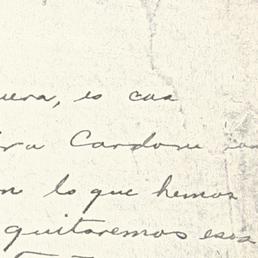 uera, es cas
ra Cardone
n lo que hemos
quitaremos esos